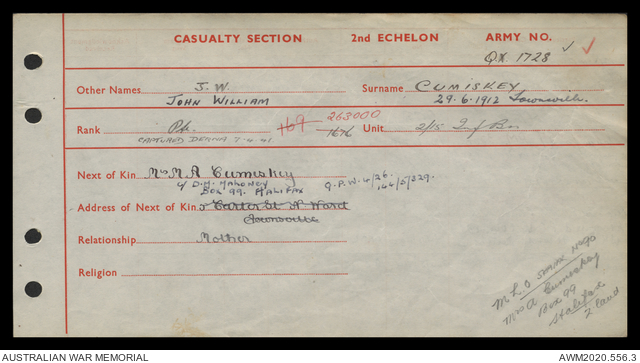 CASUALTY SECTION 2ND ECHELON ARMY NO.
QX. 1728 ✓ ✓
Other Names J. W. Surname CUMISKEY
JOHN WILLIAM 29.6.1912 Townsville.
263000
Rank Pte. 169 1676 Unit 2/15 Inf Bn
CAPTURED DERNA 7-4-41
Next of Kin Mrs M. A. Cumiskey
c/ D. H. MAHONEY Q.P.W. 4/26.
BOX 99. HALIFAX 164/5/229.
Address of Next of Kin 5 Carter St N Ward
Townsville
Relationship Mother
Religion
M L O
Mrs A Cumiskey
Box 99
Halifax
AUSTRALIAN WAR MEMORIAL AWM2020.556.3